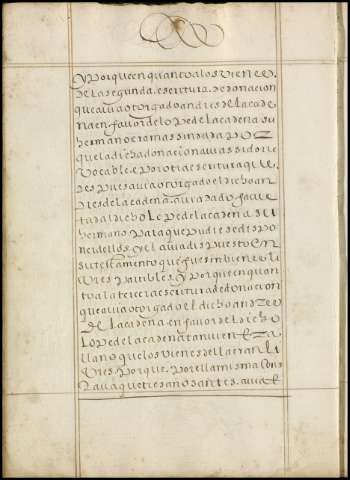 y Porque en quanto a los viene
de la segunda escritura de donacion
que auia otorgado andres de la cade
na en fauor de lope de la cadena su
hermano era mas sin duda Por
que la dicha donacion auia sido re
vocable e Por otra escritura que
des pues auia otorgado el dicho an
dres de la cadena auia dado facul
tad al dicho Lope de la cadena su
hermano Para que Pudiese dis po
ner dellos y el auia dis Puesto En
su testamento que fuesen bienes li
bres Partibles y Porque en quan
to a la tercera escritura de donacion
que auia otorgado el dicho andres
de la cadena en fauor del dicho
Lope de la cadena tanuien
llano que los vienes della eran Li
bres Porque Por ella misma cons
taua que tres años antes auia